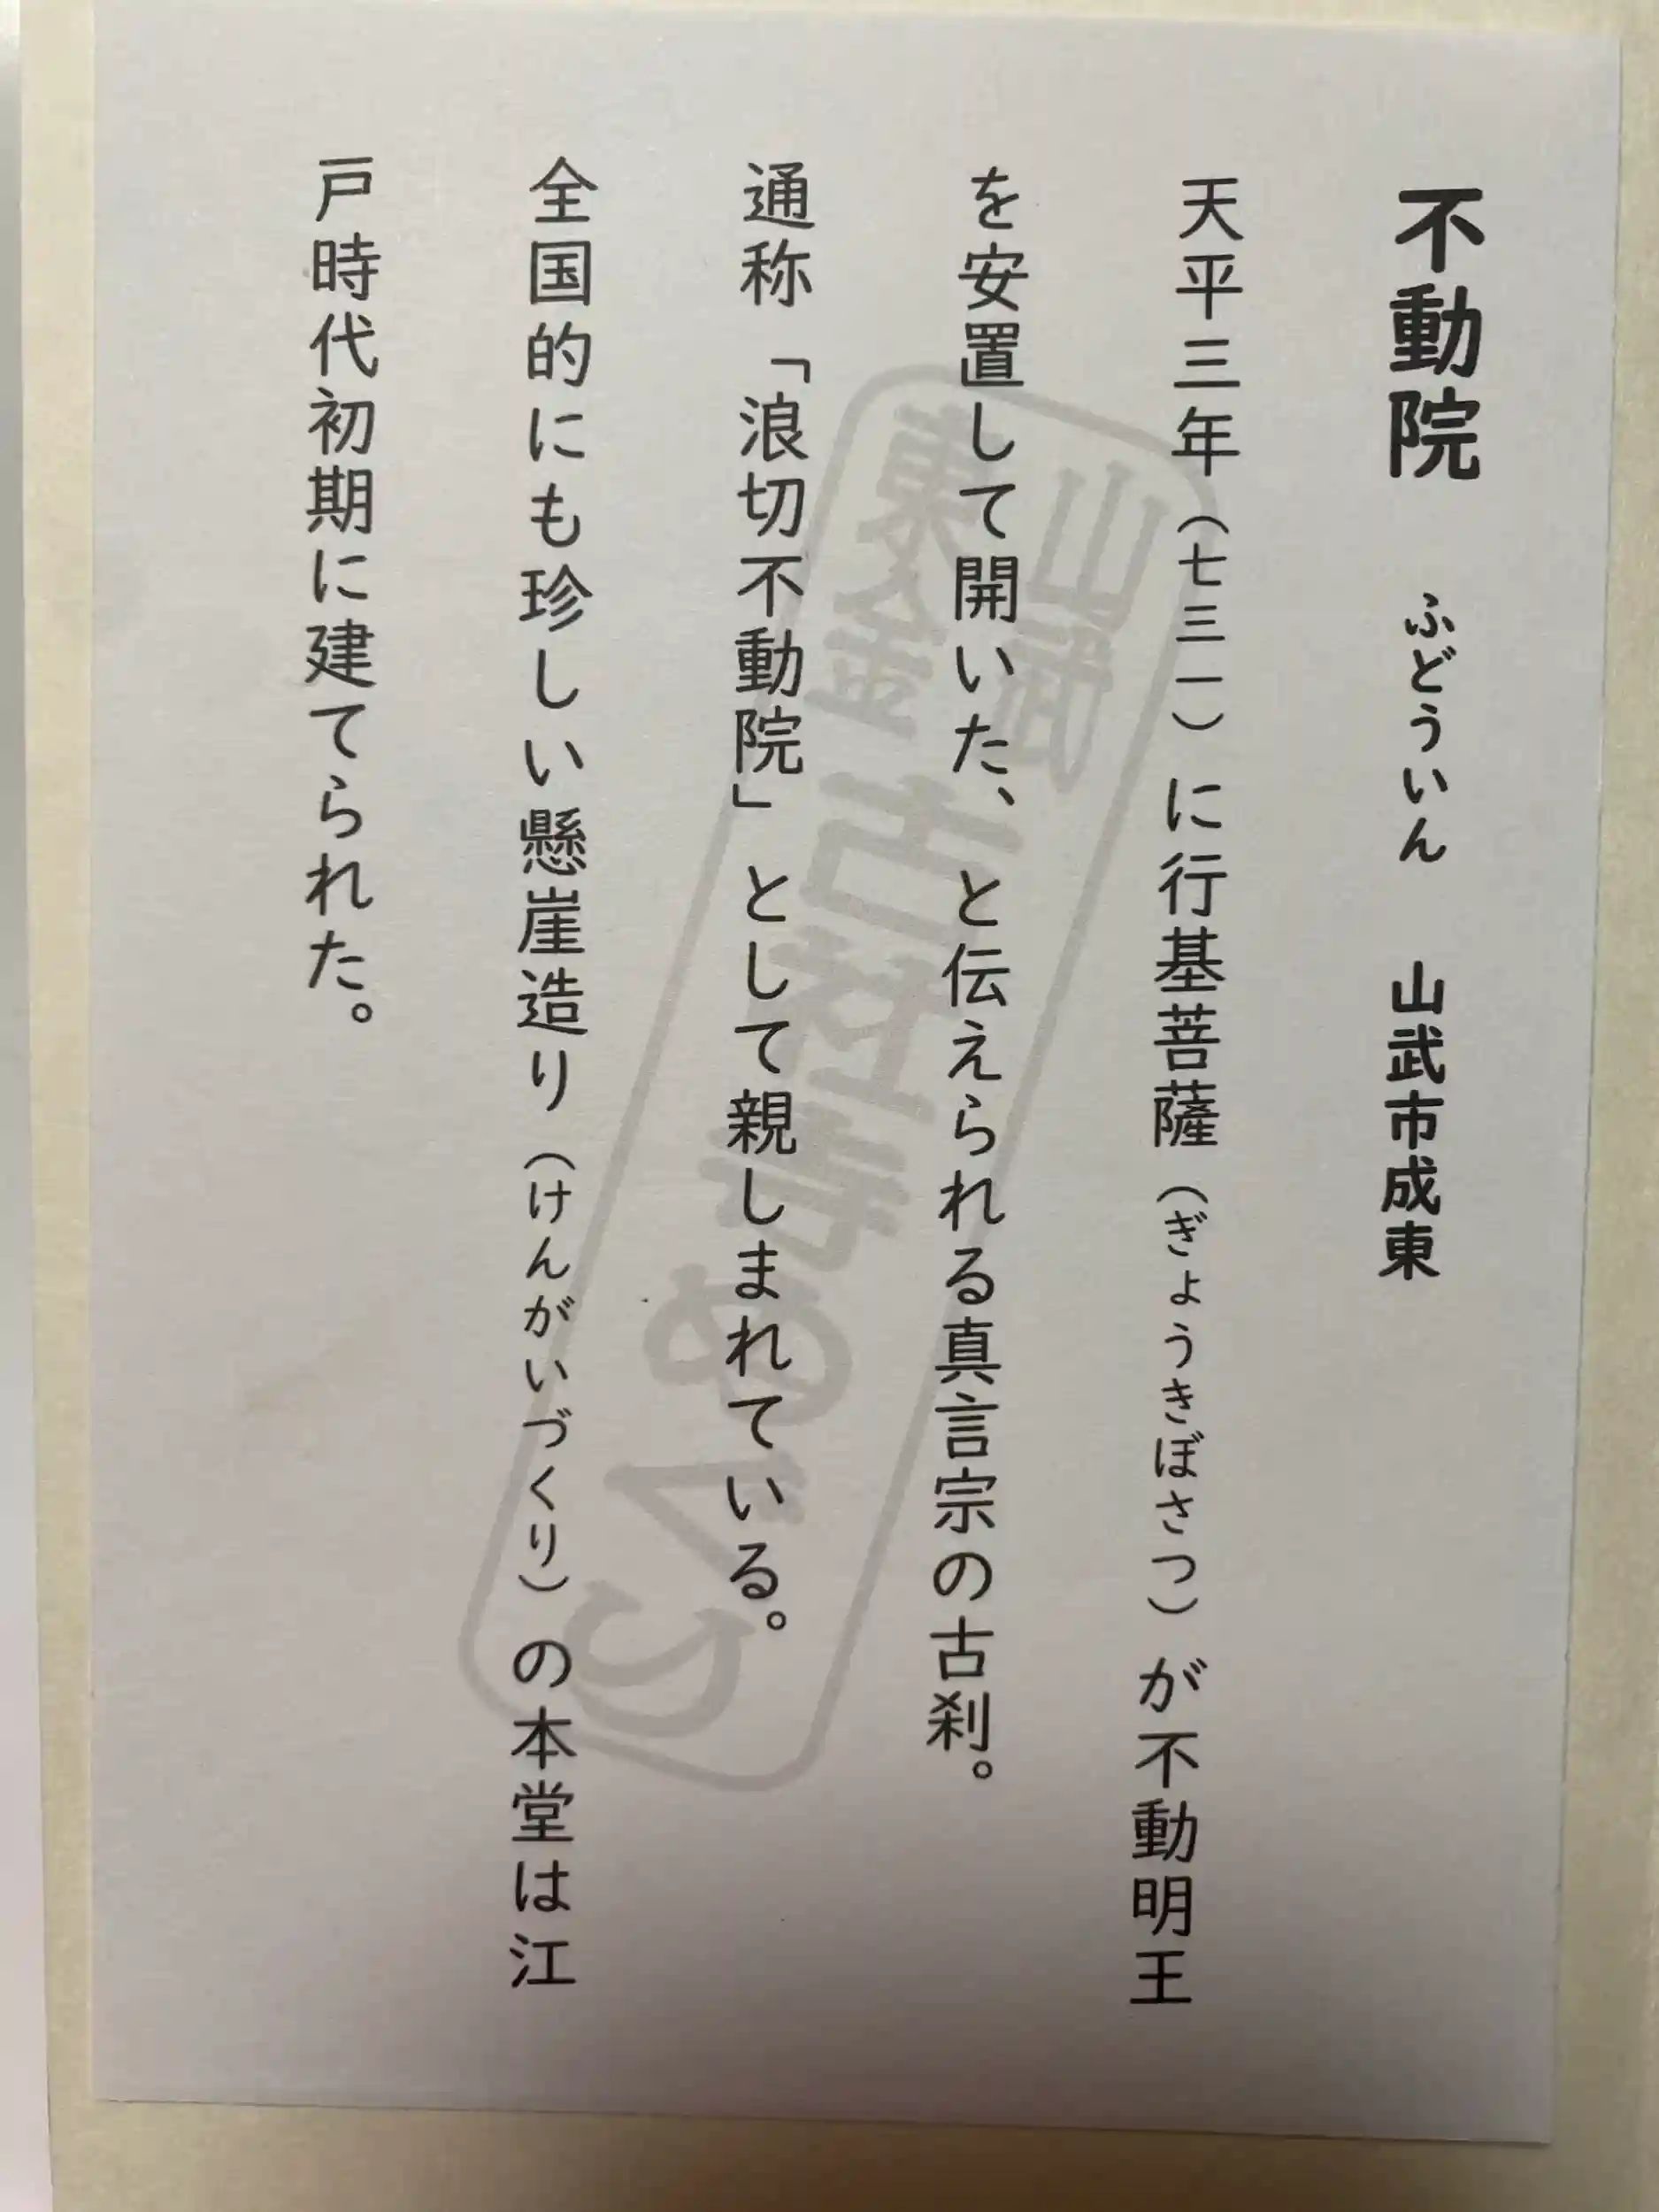 不動院 ふどういん 山武市成東
天平三年（七三一）に行基菩薩（ぎょうきぼさつ）が不動明王
を安置して開いた、と伝えられる真言宗の古刹。
通称「浪切不動院」として親しまれている。
全国的にも珍しい懸崖造り（けんがいづくり）の本堂は江
戸時代初期に建てられた。
東金
古社寺めぐり